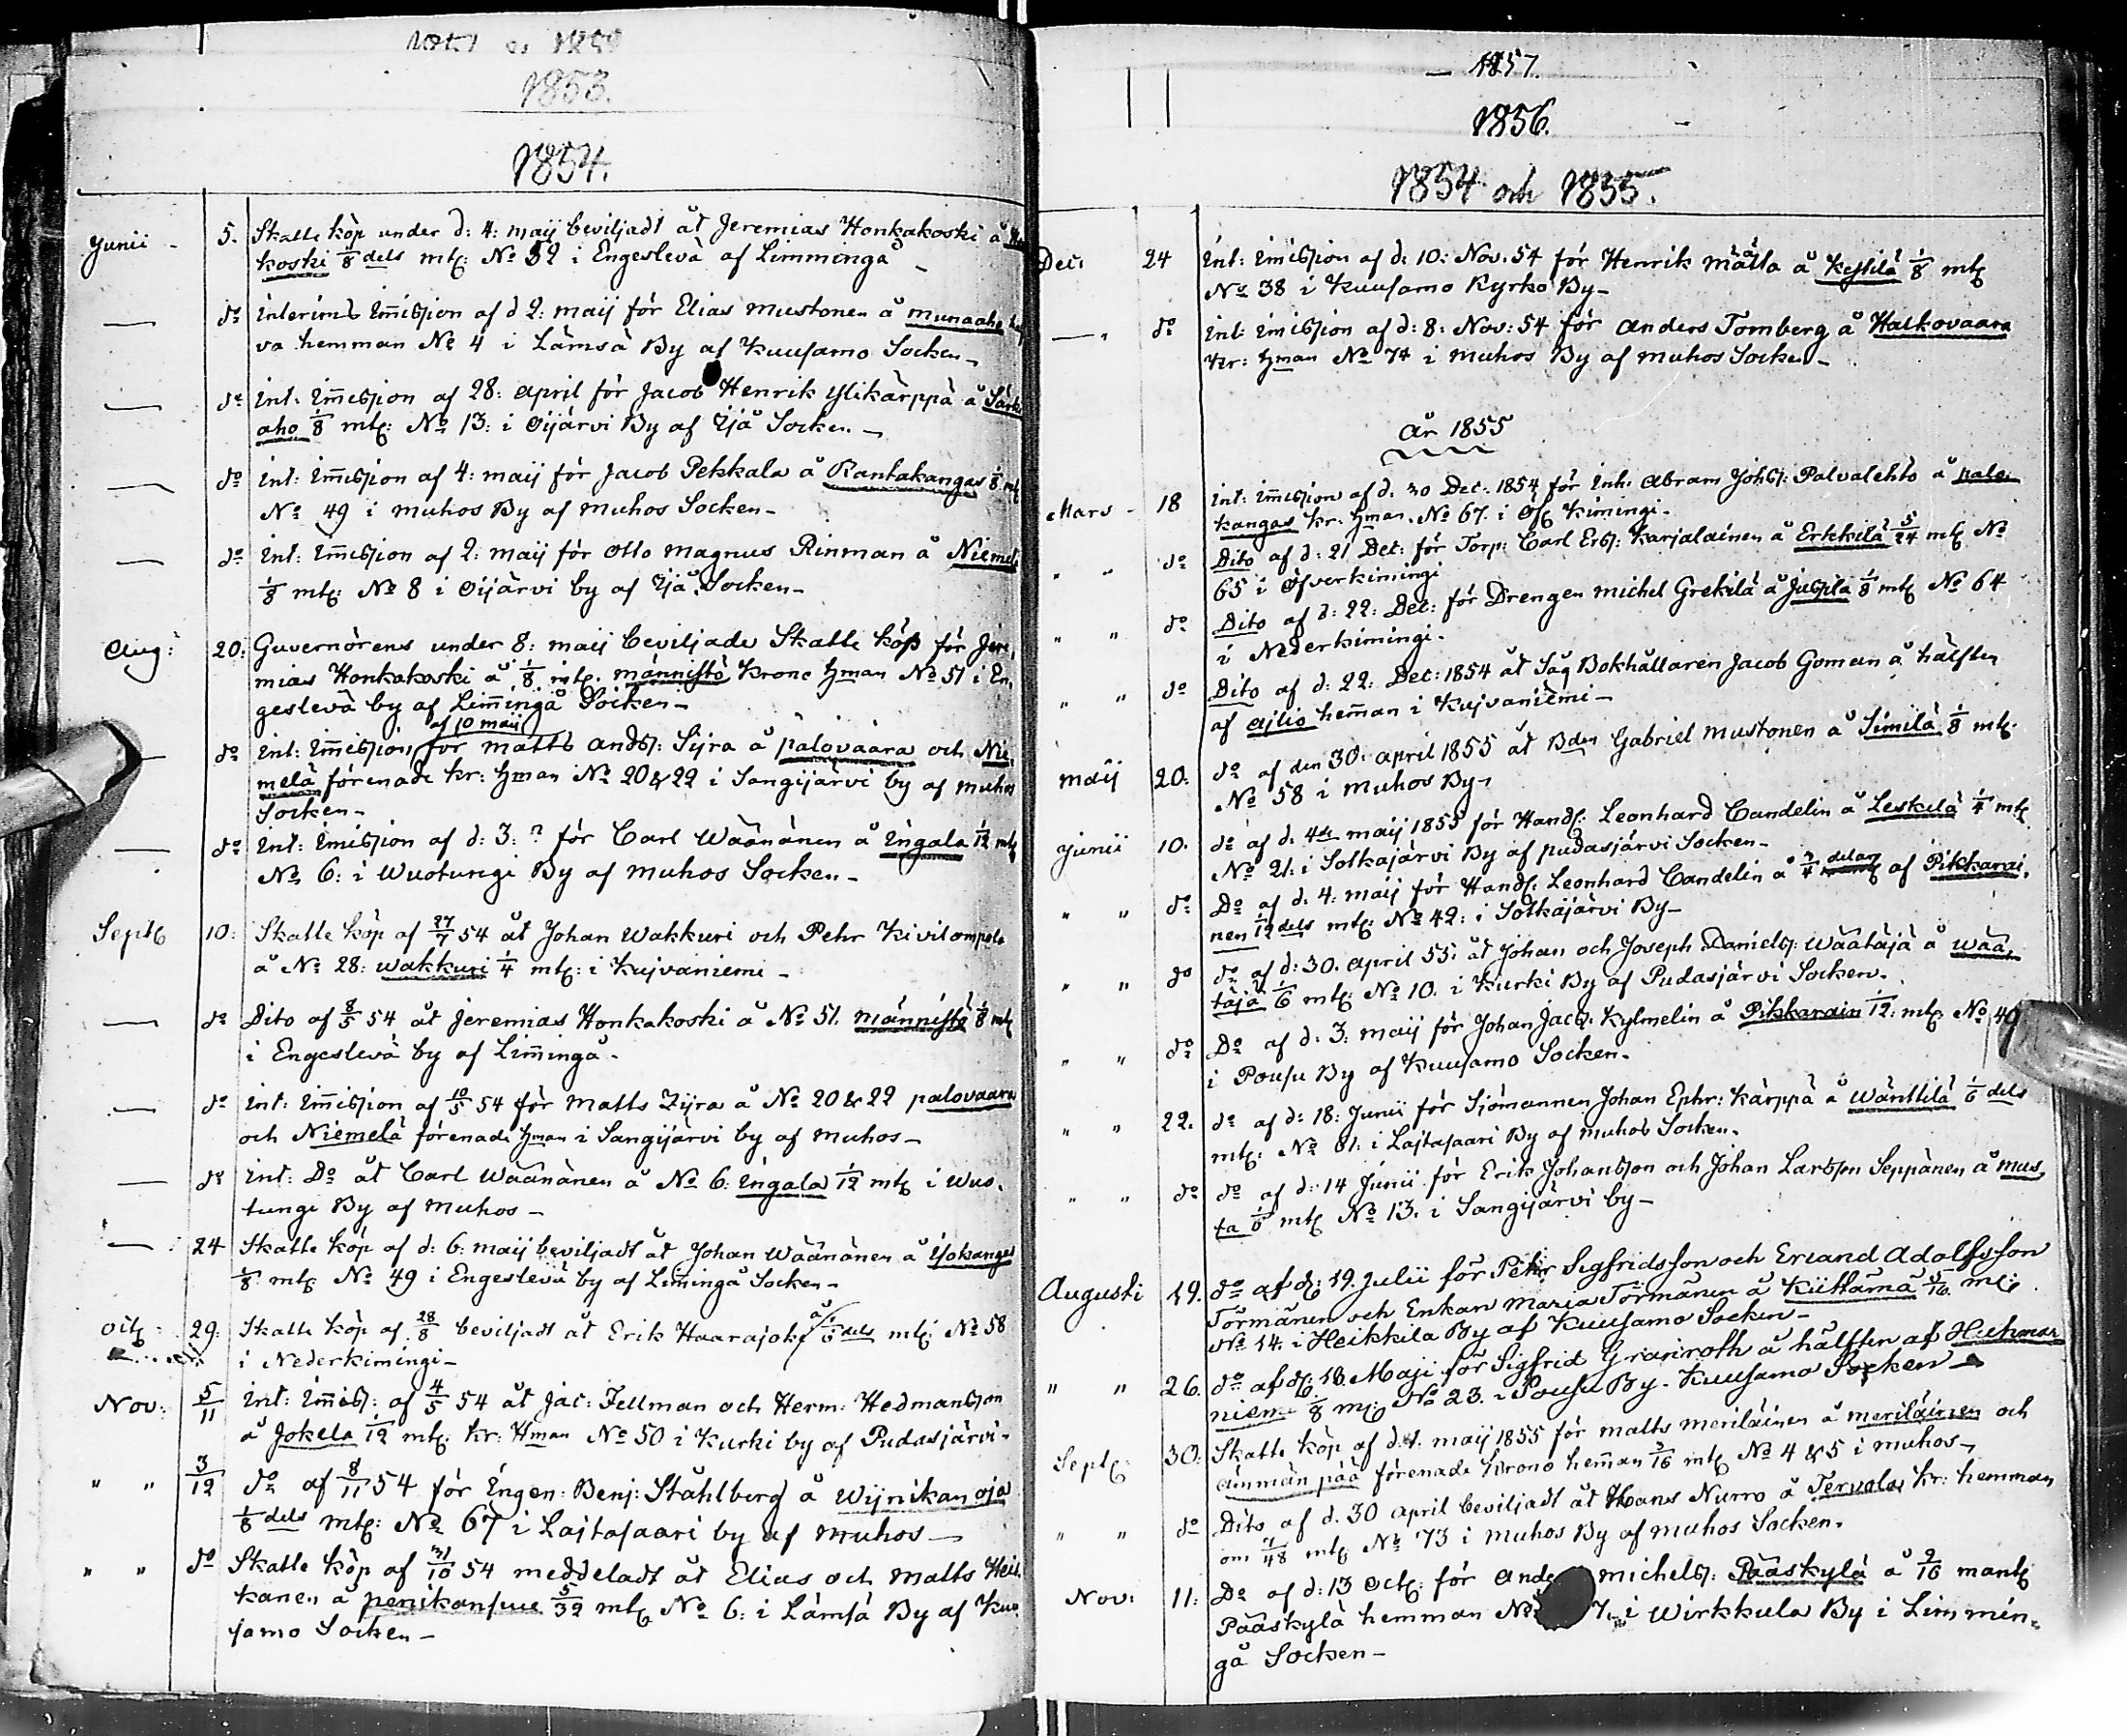 1853.
1854.
Junii - 5. Skatte köp under d: 4: maij beviljadt åt Jeremias Honkakoski å
koski 1/8 dels mtl: No 52 i Engeslevä af Limminga -
— do interims Immission af d 2: maij för Elias Mustonen å Munaaho
va hemman No 4 i Lämsä By af Kuusamo Socken -
— do Int: Immission af 28: April för Jacob Henrik Ylikärppä å Särki
aho 1/8 mtl: No 13: i Oijärvi By af Ijå Socken. -
— do Int: Immission af 4: maij för Jacob Pekkala å Rantakangas 1/8 mtl
No 49 i Muhos By af Muhos Socken -
— do Int: Immission af 2: maij för Otto Magnus Rinman å Niemel
1/8 mtl: No 8 i Oijärvi by af Ijå Socken -
Aug: 20: Guvernörens under 8: maij beviljade Skatte köp för Jere,
mias Honkakoski å 1/8 mtl. Männistö Krono Hman No 51 i En,
geslevä by af Limminga Socken -
af 10 maij
— do Int: Immission för Matts Andss: Sÿra å Palovaara och Nie,
melä förenade kr: Hman No 20 & 22 i Sangijärvi by af Muhos
Socken -
— do Int: Imission af d: 3: ? för Carl Wäänänen å Ingala 1/12 mtl
No 6: i Wuotungi By af Muhos Socken -
Septb 10: Skatte köp af 27/7 54 åt Johan Wakkuri och Pehr Kivilompolo
å No 28: Wakkuri 1/4 mtl: i Kujvaniemi -
— do Dito af 8/5 54 åt Jeremias Honkakoski å No 51. Männistö 1/8 mtl
i Engeslevä by af Limminga -
— do Int: Immission af 10/5 54 för Matts Zÿra å No 20 & 22 Palovaara
och Niemelä förenade Hman i Sangijärvi by af Muhos -
— do Int: Do åt Carl Wäänänen å No 6: Ingala 1/12 mtl i Wuo,
tungi By af Muhos -
— 24 Skatte köp af d: 6: maij beviljadt åt Johan Wäänänen å
1/8 mtl No 49 i Engeslevä by af Limminga Socken -
Octb 29: Skatte köp af 28/8 beviljadt åt Erik Haarajoki å 1/6 dels mtl: No 58
i Nederkimingi -
Nov: 5/11 Int: Immiss: af 4/5 54 åt Jac: Fellman och Herm: Hedmansson
å Jokela 1/12 mtl: kr: Hman No 50 i Kurki by af Pudasjärvi -
" " 3/12 do af 8/11 54 för Engen: Benj: Ståhlberg å Wijnikanoja
1/8 dels mtl: No 67 i Lajtasaari by af Muhos -
" " do Skatte köp af 31/10 54 meddeladt åt Elias och Matts Heik
kanen å Penikansuu 5/32 mtl No 6: i Lämsä By af Kuu
samo Socken -
- 1857.
1856.
1854 och 1855.
Dec: 24 Int: Imission af d: 10: Nov: 54 för Henrik Määtta å Kestilä 1/8 mtl
No 38 i Kuusamo Kyrko By -
— do Int: Imission af d: 8: Nov: 54 för Anders Tomberg å Halkovaara
kr: Hman No 74 i Muhos By af Muhos Socken -
År 1855
Mars - 18 Int: Immission af d. 30 Dec: 1854 för Inh: Abram Johss: Palvalehto å Palo-
kangas kr. Hman. No 67. i Öf. Kimingi -
" " do Dito af d: 21 Dec: för Torp: Carl Erss: Karjalainen å Erkkilä 5/24 mtl No
65 i Öfverkimingi
" " do Dito af d: 22: Dec: för Drengen Michel Grekilä å Juspila 1/8 mtl No 64
i Nederkimingi.
" do Dito af d: 22: Dec: 1854 åt Såg Bokhållaren Jacob Goman å hälften
af Ajlio hemman i Kujvaniemi -
maij 20: do af den 30: April 1855 åt Bden Gabriel Mustonen å Similä 1/8 mtl.
No 58 i Muhos By -
Junii 10. do af d. 4de maij 1855 för Handl: Leonhard Candelin å Leskelä 1/4 mtl
No 21: i Sotkajärvi By af Pudasjärvi Socken -
" " do Do af d. 4: maij för Handl: Leonhard Candelin å 3/4 delar af Pikkarai,
nen 1/12 dels mtl: No 42: i Sotkajärvi By -
" " do do af d: 30. April 55: åt Johan och Joseph Danielss: Wäätäjä å Wää,
täjä 1/6 mtl: No 10. i Kurki By af Pudasjärvi Socken.
" " do Do af d: 3: maij för Johan Jacs: Kylmelin å Pikkarain 1/12: mtl: No 40
i Pousu By af Kuusamo Socken.
" " 22. do af d: 18: Junii för Sjömannen Johan Ephr: Kärppä å Wänttilä 1/6 dels
mtl: No 81: i Lajtasaari By af Muhos Socken.
" " do do af d: 14 Junii för Erik Johansson och Johan Larsson Seppänen å Mus,
ta 1/6 mtl No 13. i Sangijärvi by -
Augusti 19. do af d: 19. Julii för Petter Sigfridsson och Erland Adolfsson
Törmänen och Enkan Maria Törmänen å Kiittämä 5/16 mtl:
No 14. i Heikkila By af Kuusamo Socken -
" " 26. do af d: 18. Maji för Sigfrid Granroth å hälften af
niemi 1/8 mtl: No 23. i Pousu By. Kuusamo Socken -
Septb: 30: Skatte köp af d. 4. maij 1855 för Matts Meriläinen å Meriläinen och
Ämmänpää förenade Krono hemman 3/16 mtl No 4 & 5 i Muhos -
" " do Dito af d. 30 April beviljadt åt Hans Nurro å Tervola kr: hemman
om 7/48 mtl No 73 i Muhos By af Muhos Socken.
Nov: 11: Do af d: 13 Octb: för Ande michelss: Pääskylä å 9/16 mantl
Pääskylä hemman No 7. i Wirkkula By i Limmin,
gå Socken -